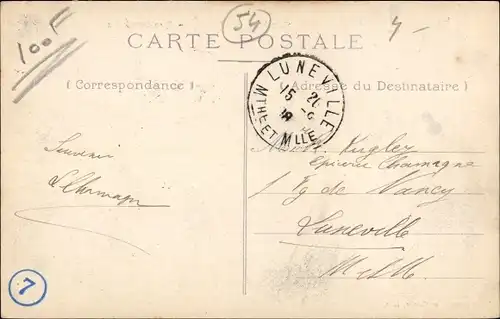 100F
54
4-
CARTE POSTALE
( Correspondance )
Adresse du Destinataire )
LUNEVILLE
15 20
MTHE ET MLLE
Souvenir
Kugler
Epicerie Champagne
1 Fg de Nancy
Lunéville
M et M
7